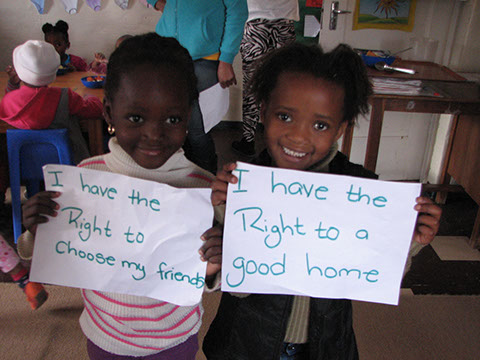 I have the
Right to
choose my friends
I have the
Right to a
good home